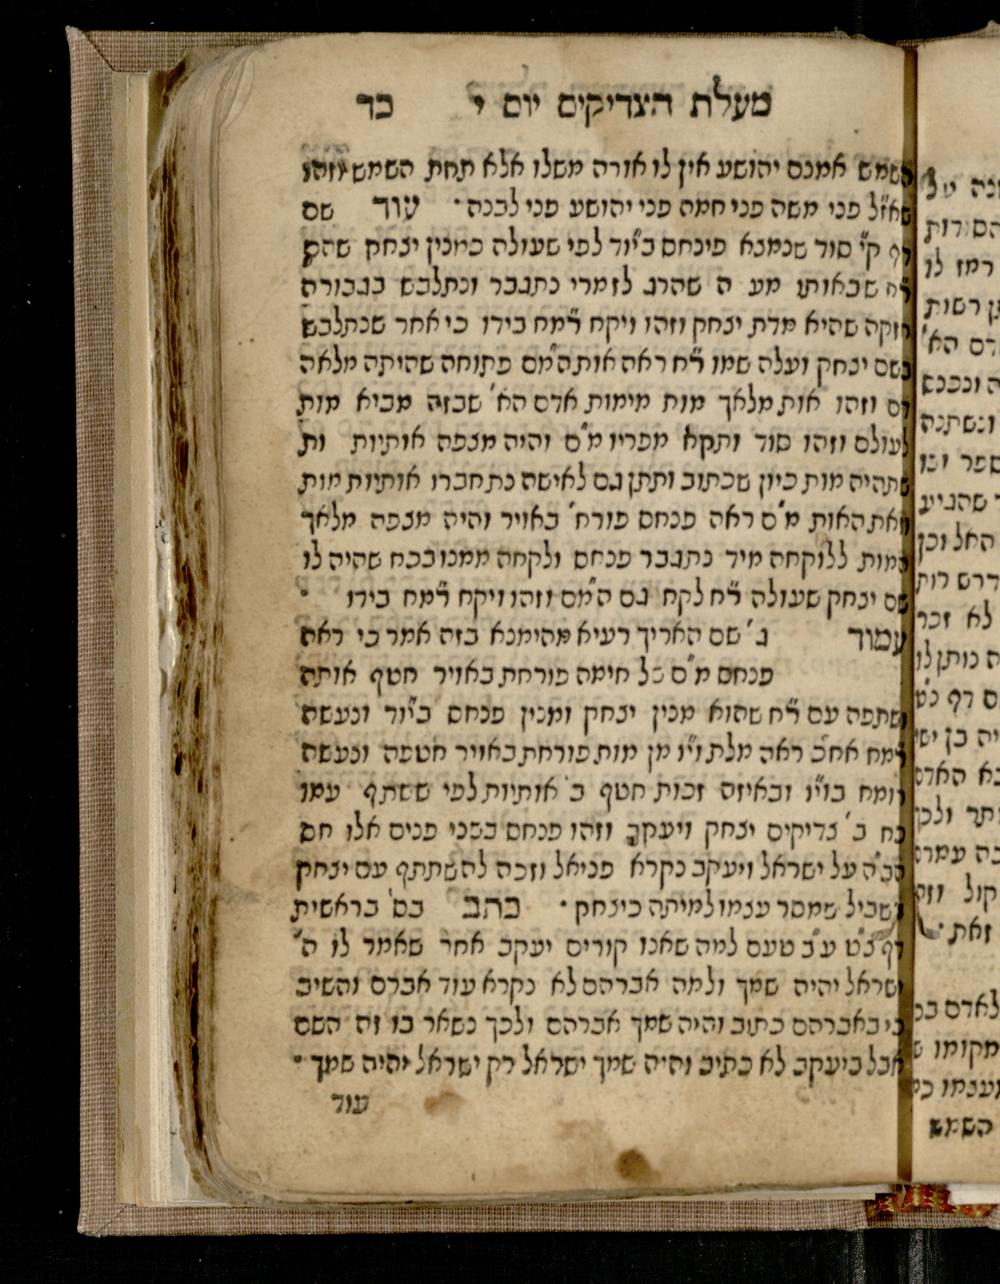 מעלת הצדיקים יום י כד
השמש אמנם יהושע אין לו אורה משלו אלא תחת השמש וזהו
שאז"ל פני משה פני חמה פני יהושע פני לבנה · עוד שם
דף ק"י סוד שנמנא פינחם ביו"ד לפי שעולה כמנין יצחק שהם
ר"ח שבאותו מע ה שהרג לזמרי נתגבר ונתלבש בגבורה
חזקה שהיא מדת יצחק וזהו ויקח רמח בידו כי אחר שנתלבש
בשם יצחק ועלה שמו ר"ח ראה אות המ"ם פתוחה שהיתה מלאה
דם וזהו אות מלאך מות מימות אדם הא' שבזה מביא מות
לעולם וזהו סוד ותקח מפריו מ"ם והיה מצפה אותיות ות
שתהיה מות כיון שכתוב ותתן גם לאישה נתחברו אותיות מות
וזאת האות מ"ם ראה פנחם פורח' באויר והיה מצפה מלאך
המות ללוקחה מיד נתגבר פנחם ולקחה ממנו בכח שהיה לו
שם יצחק שעולה ר"ח לקח גם המ"ם וזהו ויקח רמח בידו ·
עמוד ג' שם האריך רעיא מהימנא בזה אמר כי ראה
פנחם מ"ם של חימה פורחת באויר חטף אותה
ושתפה עם ר"ח שהוא מנין יצחק ומנין פנחם ביו"ד ונעשה
רמח אח"כ ראה מלת וי"ו מן מות פורחת באויר חטפה ונעשה
רומח בוי"ו ובאיזה זכות חטף ב' אותיות לפי ששתף עמו
כח ב' צדיקים יצחק ויעקב וזהו פנחם בפני פנים אלו חם
הב"ה על ישראל ויעקב נקרא פניאל וזכה להשתתף עם יצחק
בשביל שמסר עצמו למיתה כיצחק · כתב בם' בראשית
דף כ"ט ע"ב טעם למה שאנו קורים יעקב אחר שאמר לו ה'
ישראל יהיה שמך ולמה אברהם לא נקרא עוד אברם והשיב
כי באברהם כתוב והיה שמך אברהם ולכך נשאר בו זה השם
אבל ביעקב לא כתיב והיה שמך ישראל רק ישראל יהיה שמך ·
עוד